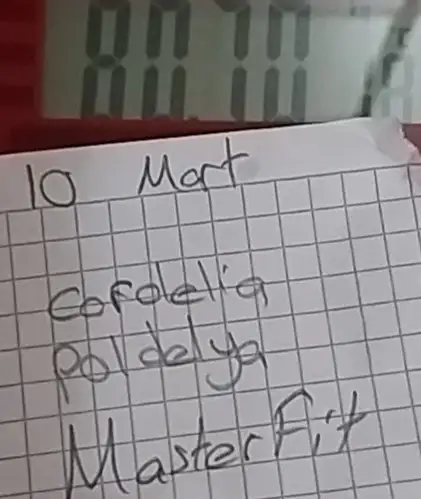 10 Mart
cordelia
poldelya
MasterFit